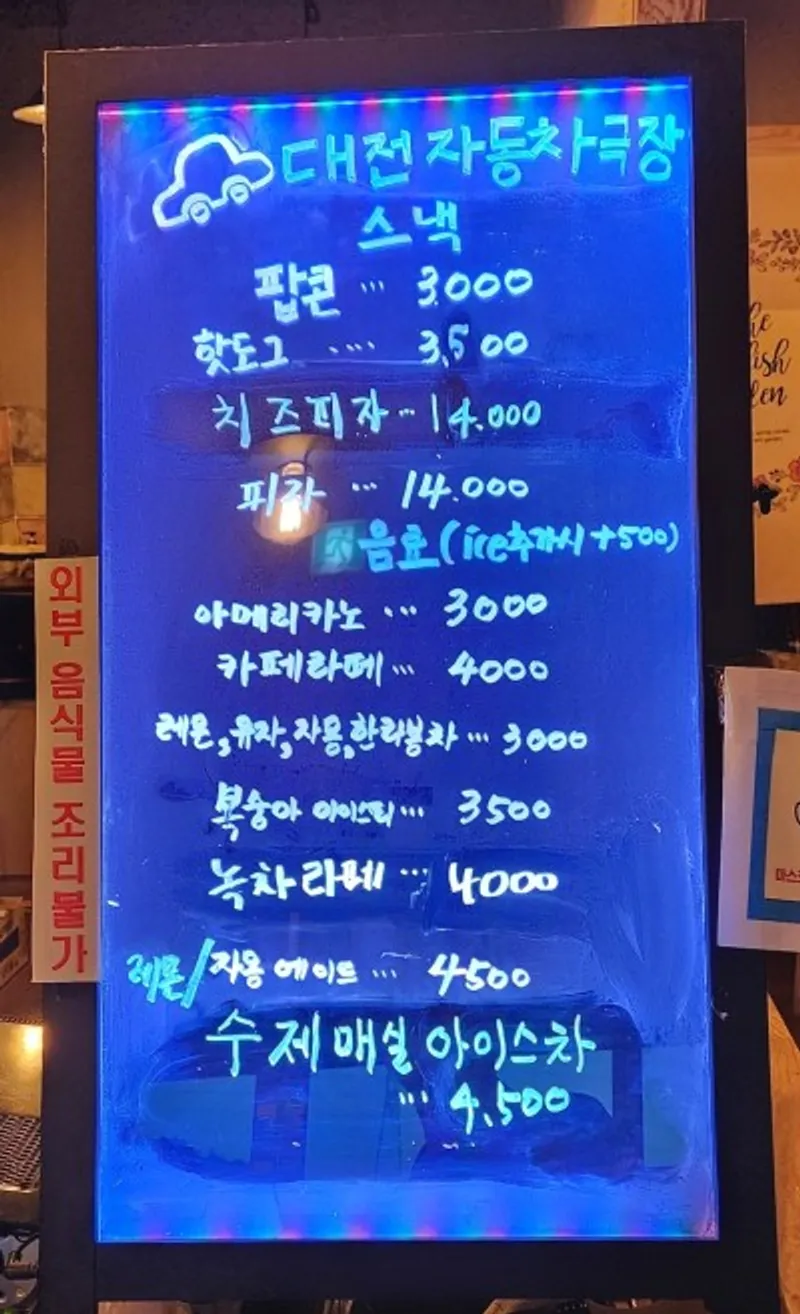 대전 자동차극장
스낵
팝콘 ... 3000
핫도그 .... 3,500
치즈피자 ... 14.000
피자 ... 14.000
음료 (ice추가시 +500)
아메리카노 ... 3000
카페라떼 ... 4000
레몬,유자,자몽,한라봉차 ... 3000
복숭아 아이스티 ... 3500
녹차라떼 ... 4000
레몬/자몽 에이드 ... 4500
수제매실 아이스차
... 4,500
외부 음식물 조리불가